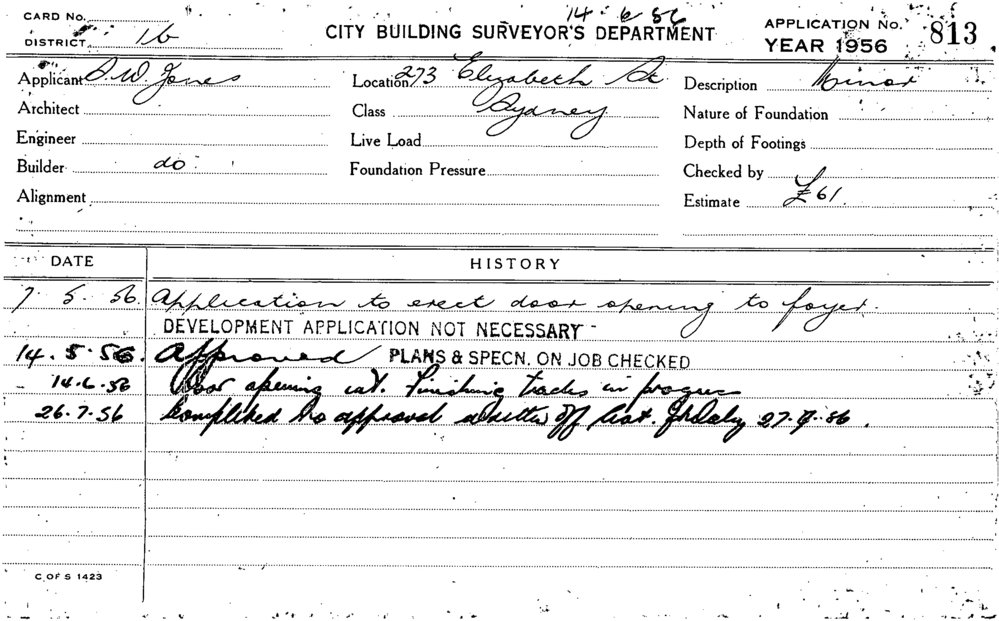 14.6.56
CARD No.
DISTRICT 16
CITY BUILDING SURVEYOR'S DEPARTMENT
APPLICATION No. 813
YEAR 1956
Applicant A.W. Jones
Location 273 Elizabeth St
Description Minor
Architect
Class Sydney
Nature of Foundation
Engineer
Live Load
Depth of Footings
Builder do
Foundation Pressure
Checked by
Alignment
Estimate £61.
DATE HISTORY
7 5. 56. Application to erect door opening to foyer.
DEVELOPMENT APPLICATION NOT NECESSARY
14.5.56. Approved PLANS & SPECN. ON JOB CHECKED
14.6.56 Door opening cut. Finishing trades in progress
26.7.56 Completed to approval off 56.
C OF S 1423